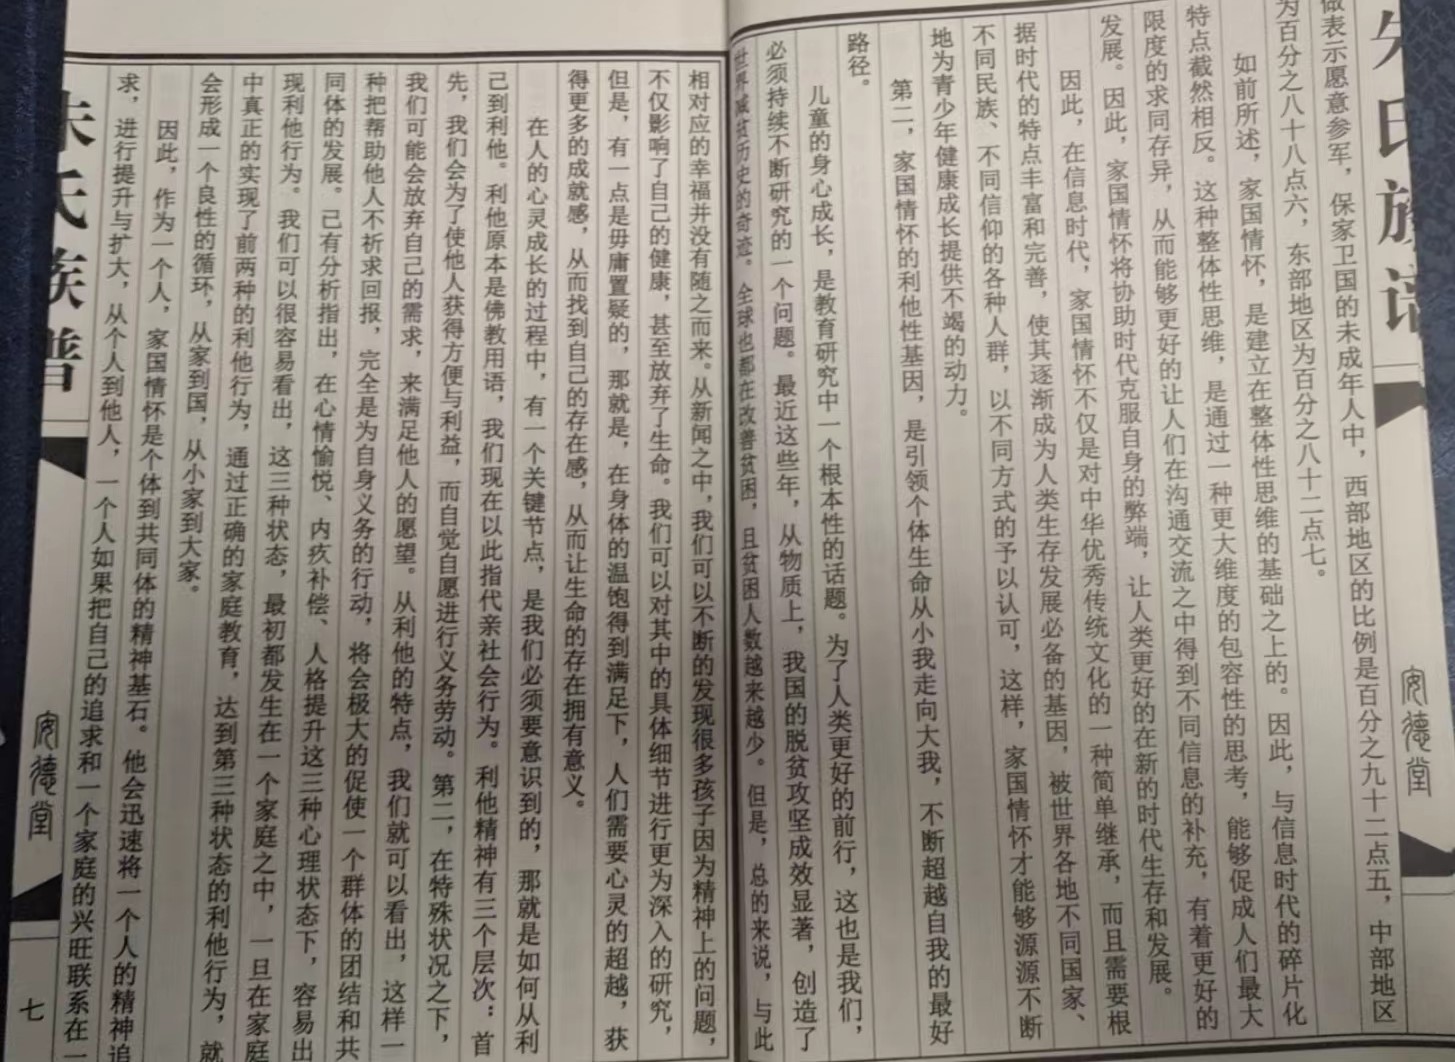 朱氏族谱
安德堂
做表示愿意参军，保家卫国的未成年人中，西部地区的比例是百分之九十二点五，中部地区
为百分之八十八点六，东部地区为百分之八十二点七。
如前所述，家国情怀，是建立在整体性思维的基础之上的。因此，与信息时代的碎片化
特点截然相反。这种整体性思维，是通过一种更大维度的包容性的思考，能够促成人们最大
限度的求同存异，从而能够更好的让人们在沟通交流之中得到不同信息的补充，有着更好的
发展。因此，家国情怀将协助时代克服自身的弊端，让人类更好的在新的时代生存和发展。
因此，在信息时代，家国情怀不仅是对中华优秀传统文化的一种简单继承，而且需要根
据时代的特点丰富和完善，使其逐渐成为人类生存发展必备的基因，被世界各地不同国家、
不同民族、不同信仰的各种人群，以不同方式的予以认可，这样，家国情怀才能够源源不断
地为青少年健康成长提供不竭的动力。
第二，家国情怀的利他性基因，是引领个体生命从小我走向大我，不断超越自我的最好
路径。
儿童的身心成长，是教育研究中一个根本性的话题。为了人类更好的前行，这也是我们，
必须持续不断研究的一个问题。最近这些年，从物质上，我国的脱贫攻坚成效显著，创造了
世界减贫历史的奇迹。全球也都在改善贫困，且贫困人数越来越少。但是，总的来说，与此
相对应的幸福并没有随之而来。从新闻之中，我们可以不断的发现很多孩子因为精神上的问题，
不仅影响了自己的健康，甚至放弃了生命。我们可以对其中的具体细节进行更为深入的研究，
但是，有一点是毋庸置疑的，那就是，在身体的温饱得到满足下，人们需要心灵的超越，获
得更多的成就感，从而找到自己的存在感，从而让生命的存在拥有意义。
在人的心灵成长的过程中，有一个关键节点，是我们必须要意识到的，那就是如何从利
己到利他。利他原本是佛教用语，我们现在以此指代亲社会行为。利他精神有三个层次：首
先，我们会为了使他人获得方便与利益，而自觉自愿进行义务劳动。第二，在特殊状况之下，
我们可能会放弃自己的需求，来满足他人的愿望。从利他的特点，我们就可以看出，这样一
种把帮助他人不祈求回报，完全是为自身义务的行动，将会极大的促使一个群体的团结和共
同体的发展。己有分析指出，在心情愉悦、内疚补偿、人格提升这三种心理状态下，容易出
现利他行为。我们可以很容易看出，这三种状态，最初都发生在一个家庭之中，一旦在家庭
中真正的实现了前两种的利他行为，通过正确的家庭教育，达到第三种状态的利他行为，就
会形成一个良性的循环，从家到国，从小家到大家。
因此，作为一个人，家国情怀是个体到共同体的精神基石。他会迅速将一个人的精神追
求，进行提升与扩大，从个人到他人，一个人如果把自己的追求和一个家庭的兴旺联系在一
朱氏族谱
安德堂
七